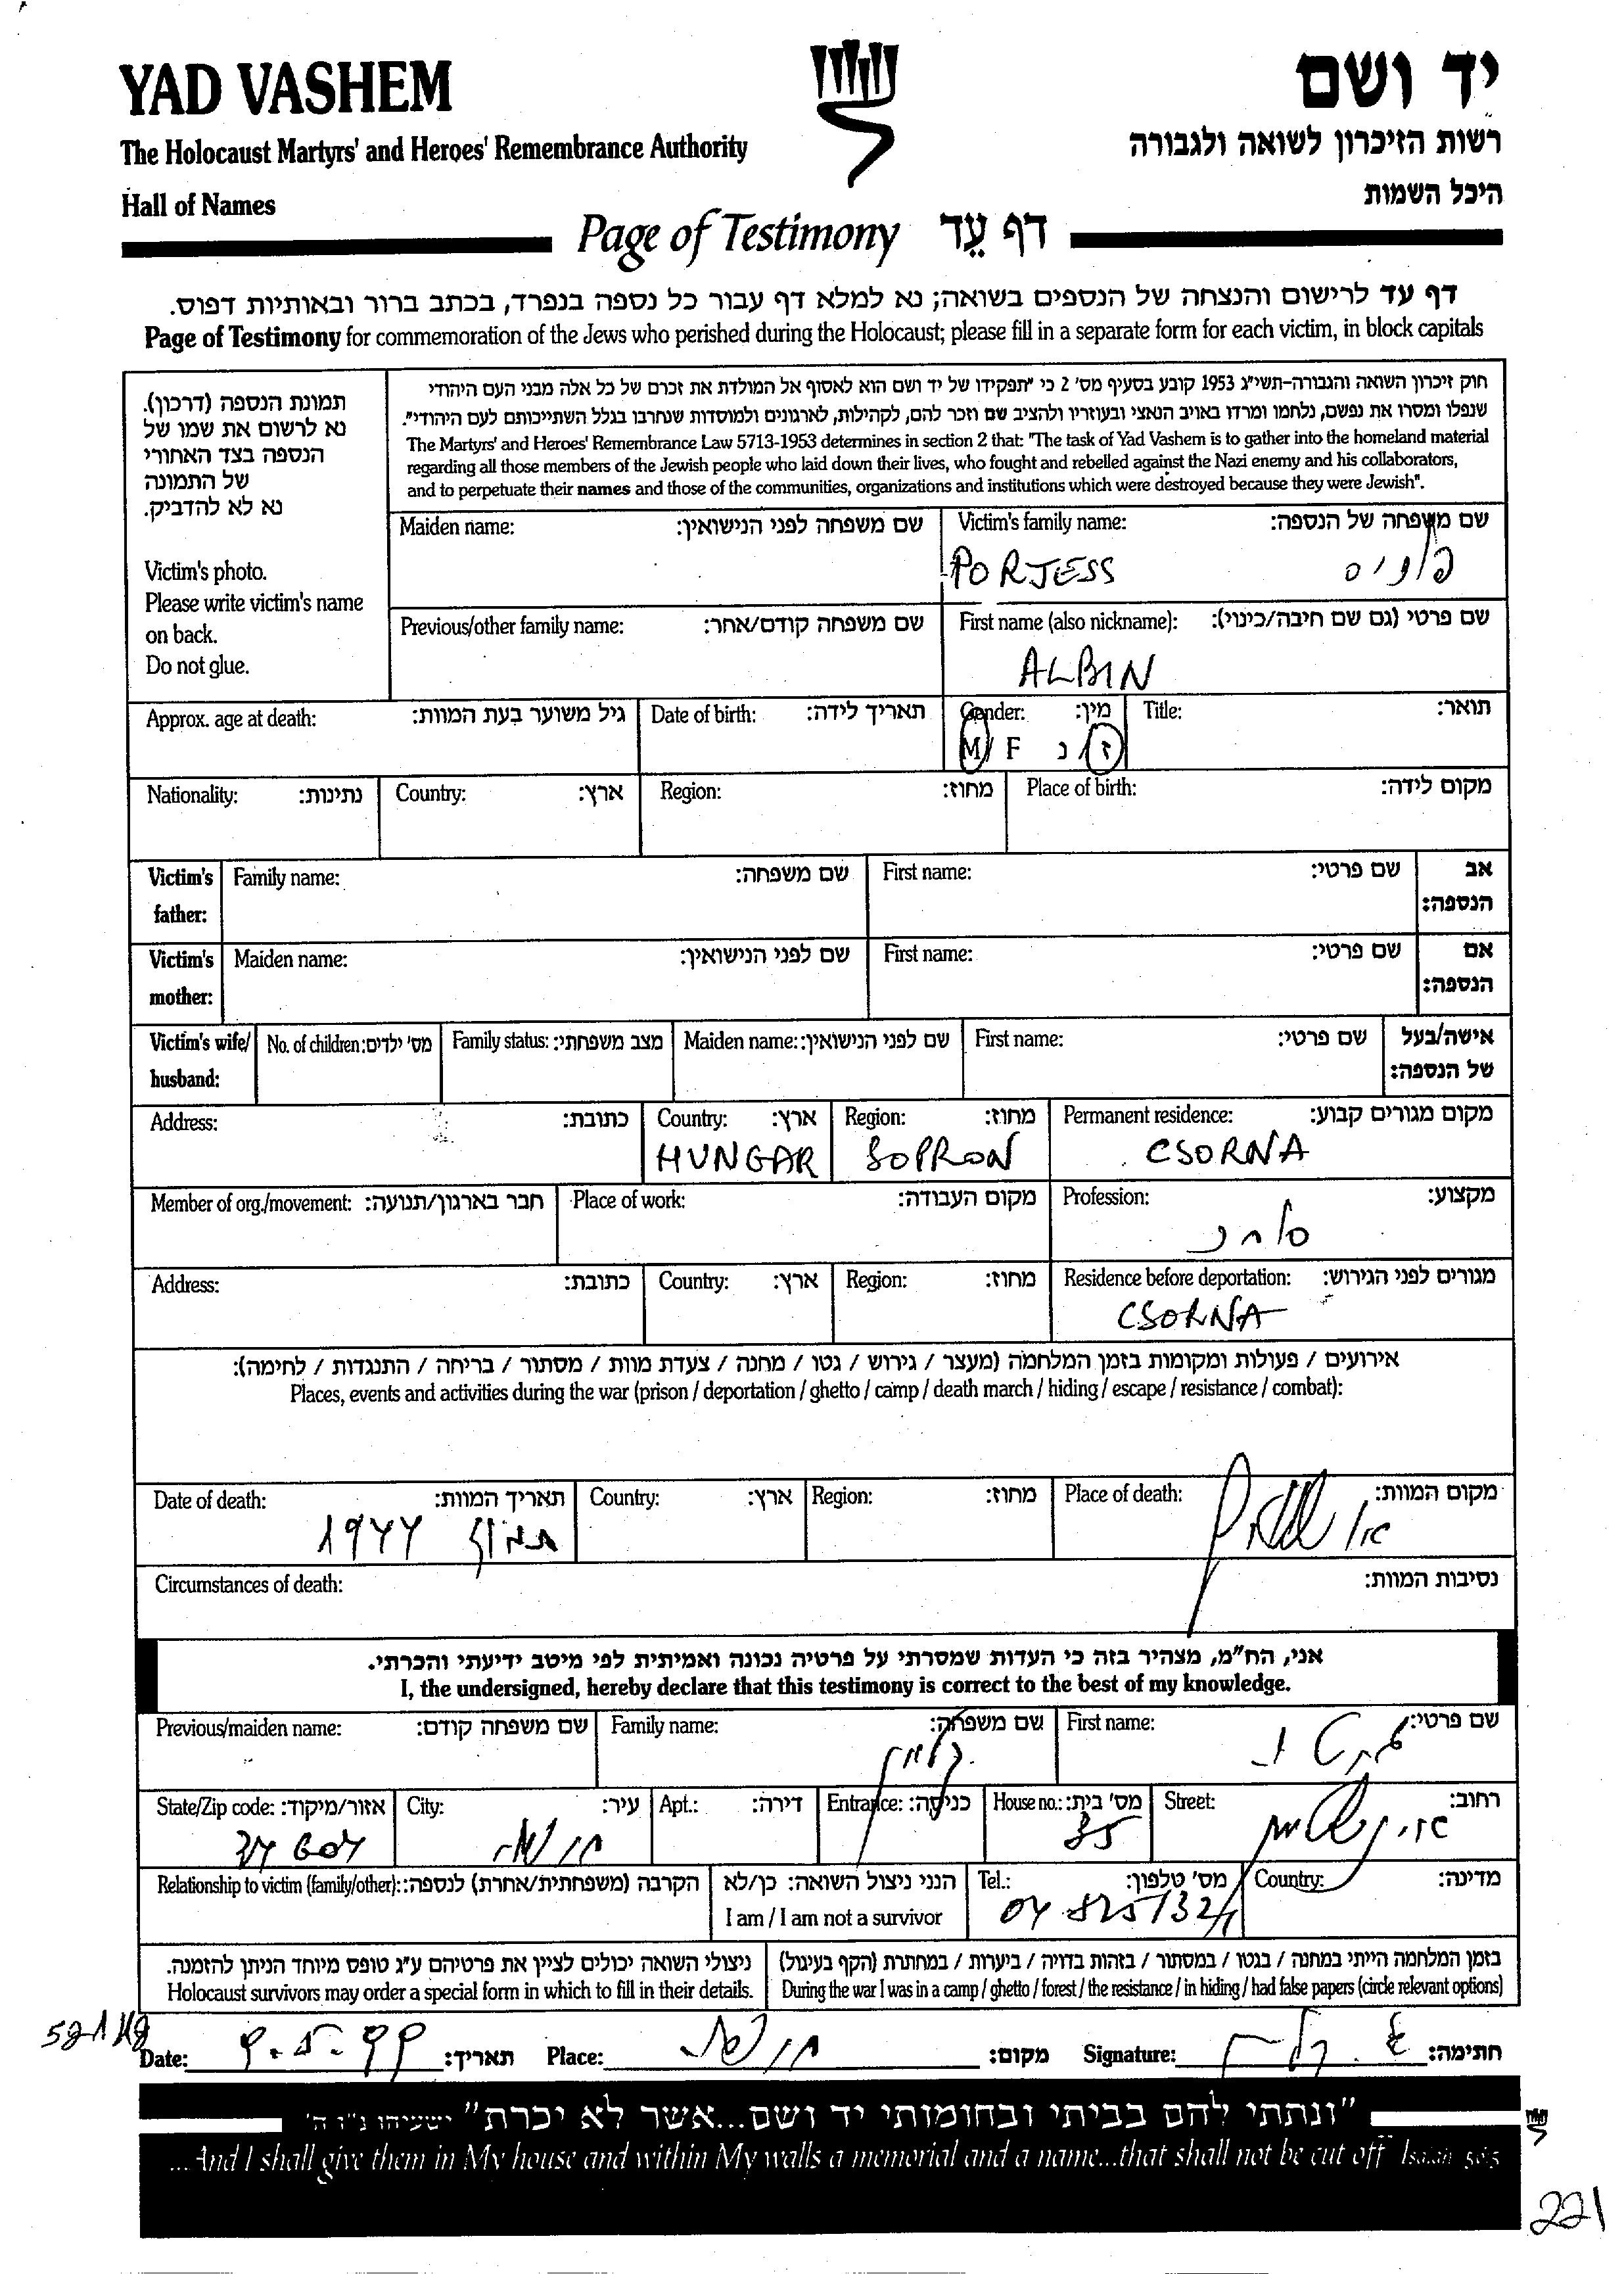 YAD VASHEM
יד ושם
The Holocaust Martyrs' and Heroes' Remembrance Authority
רשות הזיכרון לשואה ולגבורה
Hall of Names
היכל השמות
Page of Testimony דף עֵד
דף עד לרישום והנצחה של הנספים בשואה; נא למלא דף עבור כל נספה בנפרד, בכתב ברור ובאותיות דפוס.
Page of Testimony for commemoration of the Jews who perished during the Holocaust; please fill in a separate form for each victim, in block capitals
חוק זיכרון השואה והגבורה-תשי"ג 1953 קובע בסעיף מס' 2 כי "תפקידו של יד ושם הוא לאסוף אל המולדת את זכרם של כל אלה מבני העם היהודי
שנפלו ומסרו את נפשם, נלחמו ומרדו באויב הנאצי ובעוזריו ולהציב שם וזכר להם, לקהילות, לארגונים ולמוסדות שנחרבו בגלל השתייכותם לעם היהודי".
The Martyrs' and Heroes' Remembrance Law 5713-1953 determines in section 2 that: "The task of Yad Vashem is to gather into the homeland material
regarding all those members of the Jewish people who laid down their lives, who fought and rebelled against the Nazi enemy and his collaborators,
and to perpetuate their names and those of the communities, organizations and institutions which were destroyed because they were Jewish".
תמונת הנספה (דרכון).
נא לרשום את שמו של
הנספה בצד האחורי
של התמונה
נא לא להדביק.
Victim's photo.
Please write victim's name
on back.
Do not glue.
Maiden name: שם משפחה לפני הנישואין:
Victim's family name: שם משפחה של הנספה:
PORJESS
Previous/other family name: שם משפחה קודם/אחר:
First name (also nickname): שם פרטי (גם שם חיבה/כינוי):
ALBIN
Approx. age at death: גיל משוער בעת המוות:
Date of birth: תאריך לידה:
Gender: מין:
M / F ז / נ
Title: תואר:
Nationality: נתינות:
Country: ארץ:
Region: מחוז:
Place of birth: מקום לידה:
Victim's father:
Family name: שם משפחה:
First name: שם פרטי:
אב הנספה:
Victim's mother:
Maiden name: שם לפני הנישואין:
First name: שם פרטי:
אם הנספה:
Victim's wife/ husband:
No. of children: מס' ילדים:
Family status: מצב משפחתי:
Maiden name: שם לפני הנישואין:
First name: שם פרטי:
אישה/בעל של הנספה:
Address: כתובת:
Country: ארץ:
HUNGAR
Region: מחוז:
SOPRON
Permanent residence: מקום מגורים קבוע:
CSORNA
Member of org./movement: חבר בארגון/תנועה:
Place of work: מקום העבודה:
Profession: מקצוע:
סוחר
Address: כתובת:
Country: ארץ:
Region: מחוז:
Residence before deportation: מגורים לפני הגירוש:
CSORNA
אירועים / פעולות ומקומות בזמן המלחמה (מעצר / גירוש / גטו / מחנה / צעדת מוות / מסתור / בריחה / התנגדות / לחימה):
Places, events and activities during the war (prison / deportation / ghetto / camp / death march / hiding / escape / resistance / combat):
Date of death: תאריך המוות:
1944
Country: ארץ:
Region: מחוז:
Place of death: מקום המוות:
Circumstances of death: נסיבות המוות:
אני, הח"מ, מצהיר בזה כי העדות שמסרתי על פרטיה נכונה ואמיתית לפי מיטב ידיעתי והכרתי.
I, the undersigned, hereby declare that this testimony is correct to the best of my knowledge.
Previous/maiden name: שם משפחה קודם:
Family name: שם משפחה:
First name: שם פרטי:
State/Zip code: אזור/מיקוד:
City: עיר:
Apt.: דירה:
Entrance: כניסה:
House no.: מס' בית:
35
Street: רחוב:
Relationship to victim (family/other): הקרבה (משפחתית/אחרת) לנספה:
הנני ניצול השואה: כן/לא
I am / I am not a survivor
Tel.: מס' טלפון:
Country: מדינה:
ניצולי השואה יכולים לציין את פרטיהם ע"ג טופס מיוחד הניתן להזמנה.
Holocaust survivors may order a special form in which to fill in their details.
בזמן המלחמה הייתי במחנה / בגטו / במסתור / בזהות בדויה / ביערות / במחתרת (הקף בעיגול)
During the war I was in a camp / ghetto / forest / the resistance / in hiding / had false papers (circle relevant options)
Date: 9.5.99 תאריך:
Place: מקום:
Signature: חתימה:
"ונתתי להם בביתי ובחומותי יד ושם...אשר לא יכרת" ישעיהו נ"ו ה'
...And I shall give them in My house and within My walls a memorial and a name...that shall not be cut off Isaiah 56:5
221